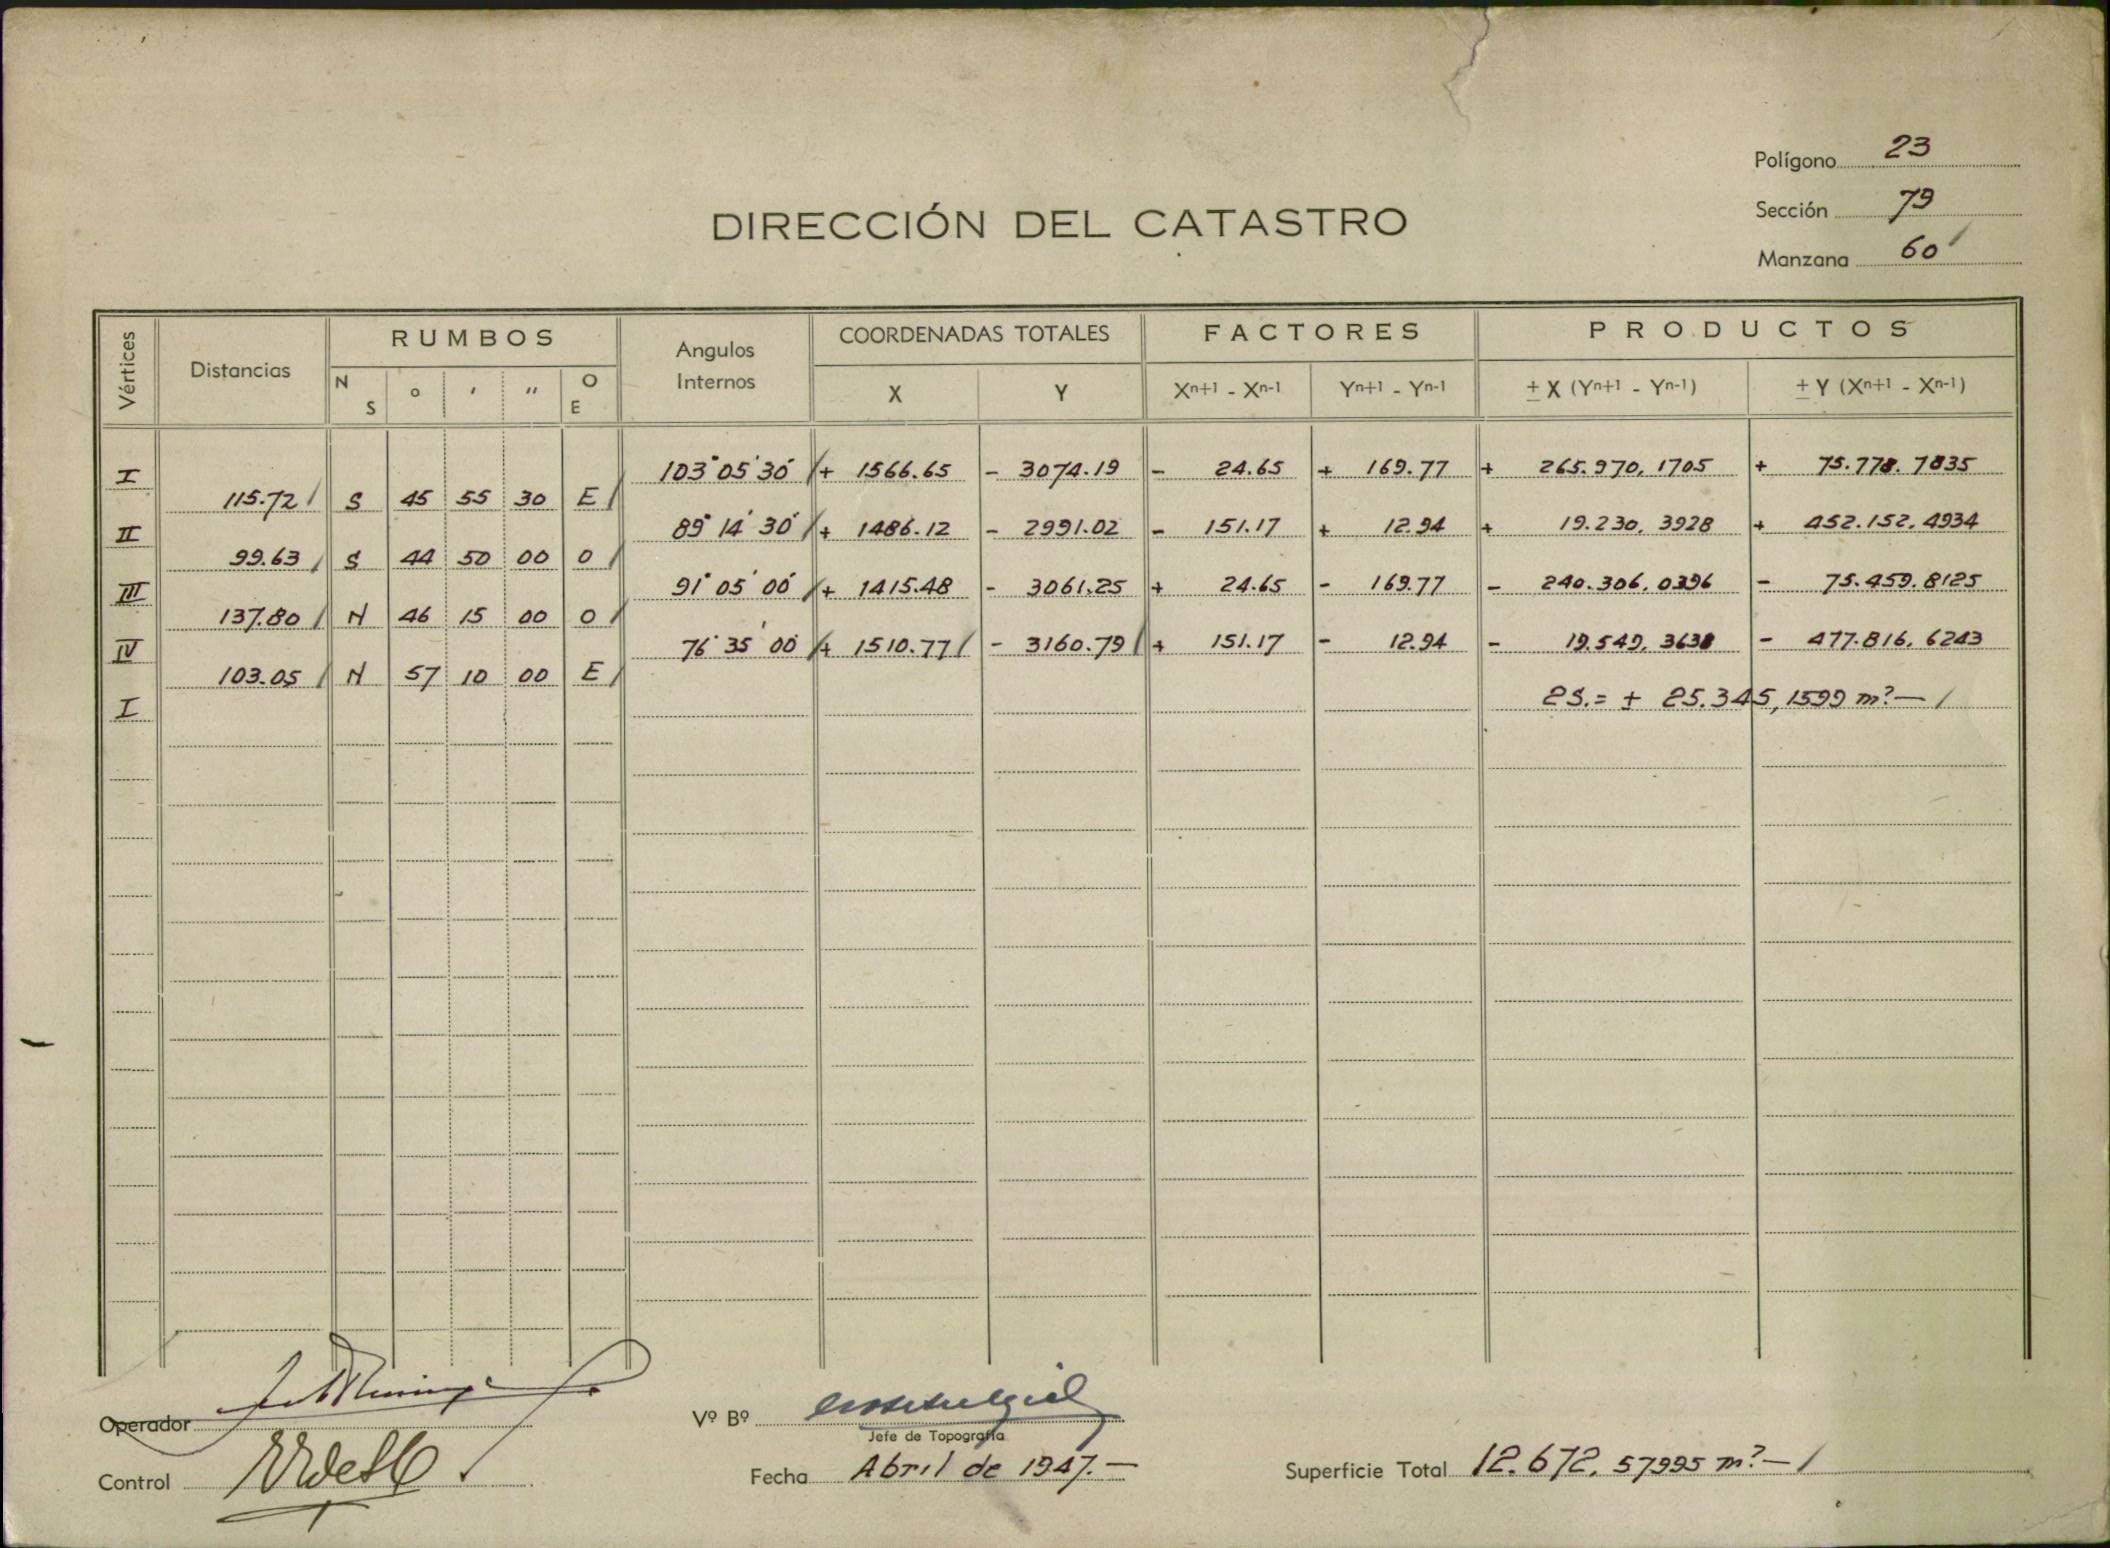 Polígono 23
Sección 79
Manzana 60
DIRECCIÓN DEL CATASTRO
Vértices Distancias RUMBOS Angulos Internos COORDENADAS TOTALES FACTORES PRODUCTOS
N S ° ' " O E X Y Xn+1 - Xn-1 Yn+1 - Yn-1 ± X (Yn+1 - Yn-1) ± Y (Xn+1 - Xn-1)
I 103° 05' 30" + 1566.65 - 3074.19 - 24.65 + 169.77 + 265.970,1705 + 75.778.7835
115.72 S 45 55 30 E
II 89° 14' 30" + 1486.12 - 2991.02 - 151.17 + 12.94 + 19.230,3928 + 452.152,4934
99.63 S 44 50 00 O
III 91° 05' 00" + 1415.48 - 3061.25 + 24.65 - 169.77 - 240.306,0396 - 75.459.8125
137.80 N 46 15 00 O
IV 76° 35' 00" + 1510.77 - 3160.79 + 151.17 - 12.94 - 19.549,3638 - 477.816,6243
103.05 N 57 10 00 E
I 2S.= ± 25.345,1599 m².—
Operador
Control
Vº Bº
Jefe de Topografía
Fecha Abril de 1947.—
Superficie Total 12.672,57995 m².—